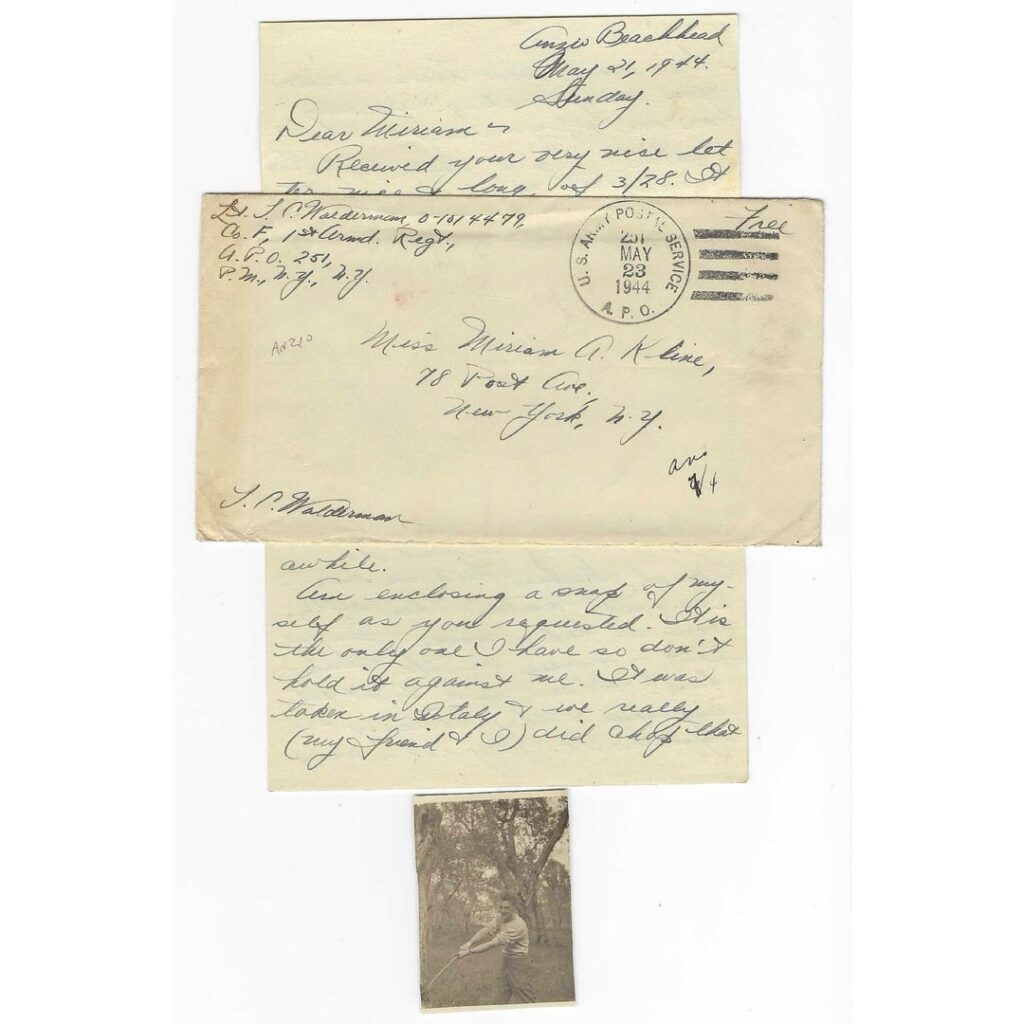 Anzio Beachhead
May 21, 1944.
Sunday.
Dear Miriam ~
Received your very nice let
ter, nice & long, of 3/28. It
Lt. T. C. Walderman, 0-1014479,
Co. F, 1st Armd. Regt.,
A.P.O. 251,
P.M., N.Y., N.Y.
U.S. ARMY POSTAL SERVICE
251
MAY
23
1944
A.P.O.
Free
ANZIO
Miss Miriam A. Kline,
78 Post Ave.,
New York, N.Y.
ans
/4
T. C. Walderman
awhile.
Am enclosing a snap of my-
self as you requested. It is
the only one I have so don't
hold it against me. It was
taken in Italy & we really
(my friend & I) did chop that